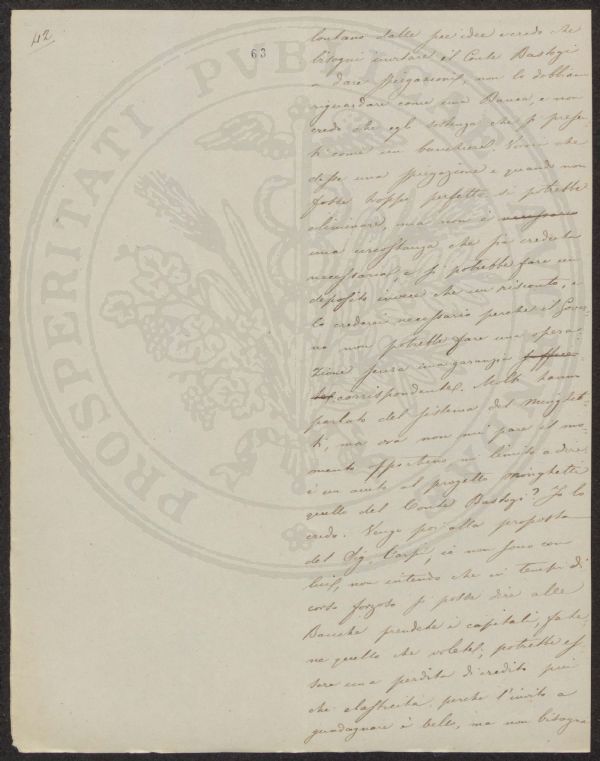 42
63
lontano dalle sue idee e credo che
bisogni invitare il Conte Bastogi
a dare spiegazioni, non lo dobbiam
riguardare come una Banca, e non
credo che egli sostenga che si presen
ti come un banchiere. Vorrei che
desse una spiegazione e quando non
fosse troppo perfetta si potrebbe
eliminare, ma non è necessario
una circostanza che sia creduta
necessaria, e si potrebbe fare un
deposito invece che un risconto, e
lo crederei necessario perché il Gover-
no non potrebbe fare una opera-
zione senza una garanzia
corrispondente. Molti hanno
parlato del sistema del Minghet-
ti, ma ora non mi pare il mo-
mento opportuno mi limito a dire
è un aiuto al progetto Minghetti
quello del Conte Bastogi? Io lo
credo. Vengo poi alla proposta
del Sig. Carpi, io non sono con
lui, non intendo che in tempi di
corso forzoso si possa dire alle
Banche prendete i capitali, fate
ne quello che volete; potrebbe es
sere una perdita di credito più
che elasticità, perché l'invito a
guadagnare è bello, ma non bisogna
PROSPERITATI PVBLICAE